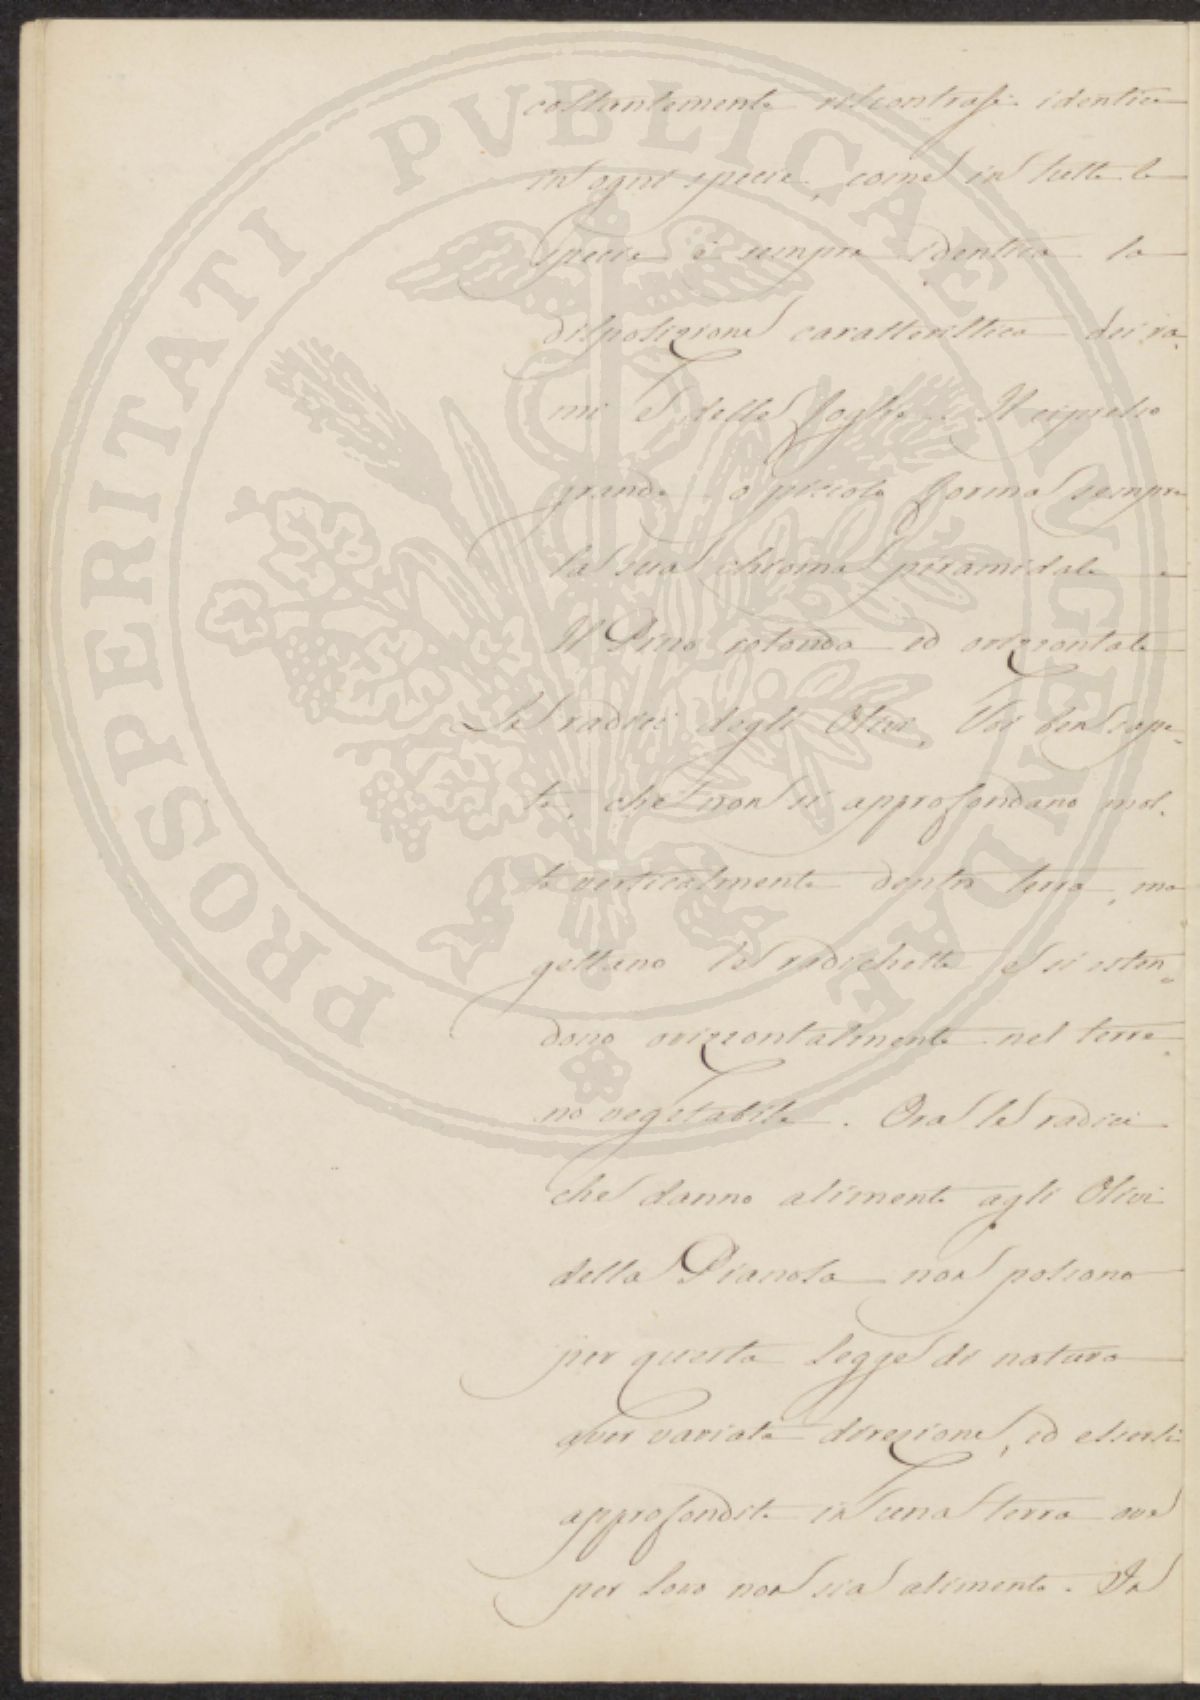 costantemente riscontrasi identica
in ogni specie, come in tutte le
specie è sempre identica la
disposizione caratteristica dei ra-
mi e delle foglie. Il cipresso
grande o piccolo forma sempre
la sua chioma piramidale e
Il Pino rotonda ed orizzontale
Le radici degli Olivi, Voi ben sape-
te, che non si approfondano mol-
to verticalmente dentro terra, ma
gettano le radichette e si esten-
dono orizzontalmente nel terre-
no vegetabile. Ora le radici
che danno alimento agli Olivi
della Pianosa non possono
per questa legge di natura
aver variata direzione, ed essersi
approfondite in una terra ove
per loro non sia alimento. In
PROSPERITATI PVBLICAE AVGENDAE